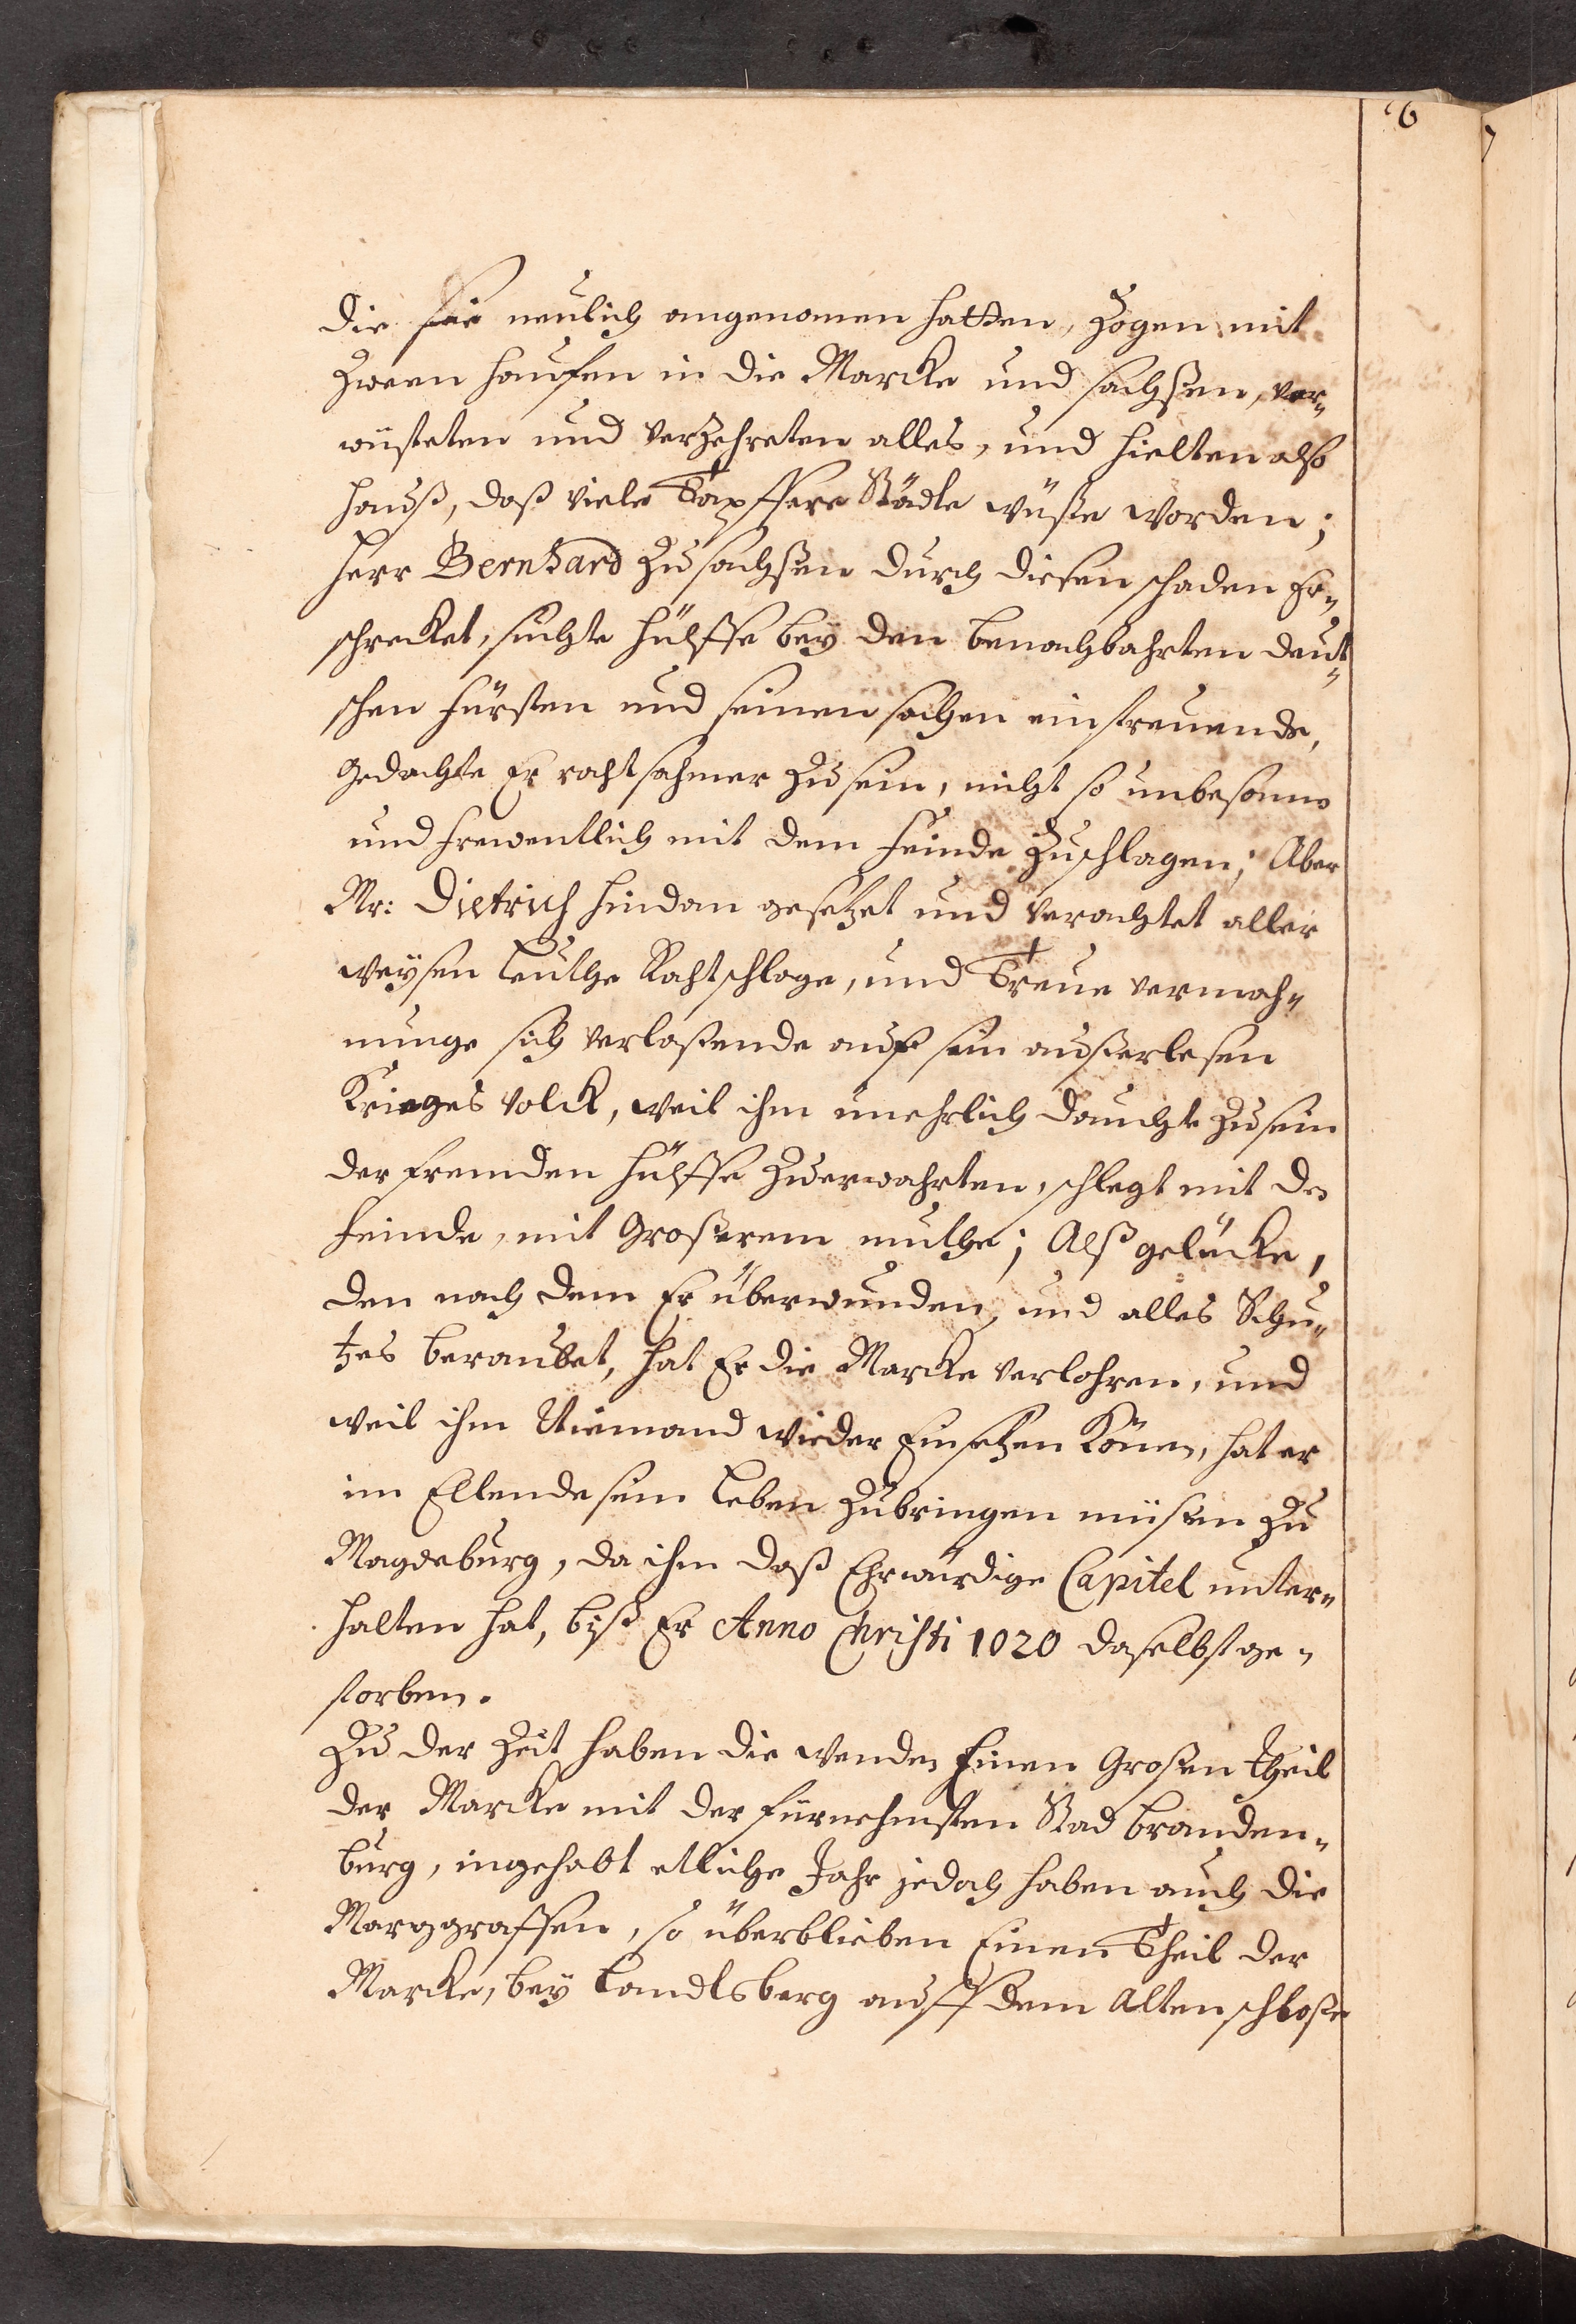 6
die sie neulich angenomen hatten, Zogen mit
Zween hauffen in die Marcke und sachsen, ver„
wüsteten und verzehreten alles, und hielten also
hauß, daß viele Tapffere Städte wüste worden;
herr Bernhard Zu sachsen durch diesen schaden Er„
schrecket, suchte hülffe bey den benachbahrten deut„
schen fürsten und seinen sachen
gedachte Er rahtsahmer zu sein, nicht so unbesonn
und freventlich mit dem feinde Zuschlagen; Aber
Mr: Dietrich hindan gesetzet und verachtet aller
weysen leuthe Rahtschlage, und Treue vermah„
nunge sich verlaßende auf sein außerlesen
Krieges volck, weil ihm unehrlich dauchte Zu sein
der fremden hülffe Zuerwahrten, schlegt mit de
feinde, mit Großerem muthe; Alß gelücke,
den nach dem Er überwunden, und alles Schu„
tzes beraubet, hat Er die Marcke verlohren, und
weil ihm Niemand wieder Einsetzen Könen, hat er
im Ellende sein leben Zubringen müßen Zu
Magdeburg, da ihm daß Ehrwürdige Capitel unter„
halten hat, biß Er Anno Christi 1020 daselbst ge„
storben.
Zu der Zeit haben die wenden Einen Großen theil
der Marcke mit der fürnehmsten Stad branden„
burg, ingehabt etliche Jahr jedoch haben auch die
Marggraffen, so überblieben Einen Theil der
Marcke, bey landtsberg auff dem Alten schloße